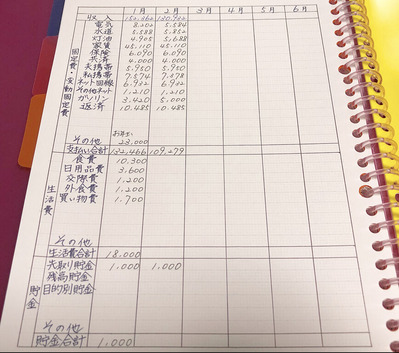 1月 2月 3月 4月 5月 6月
収入 152,362 130,902
固定費・変動固定費
電気 8,202 5,584
水道 5,588 5,852
灯油 4,905 5,688
家賃 45,110 45,110
保険 6,090 6,090
共済 4,000 4,000
夫携帯 5,950 5,950
私携帯 7,574 7,578
ネット回線 6,932 6,932
その他ネット 1,210 1,210
ガソリン 3,420 5,000
返済 10,485 10,485
お年玉
その他 23,000
支払い合計 132,466 109,279
生活費
食費 10,300
日用品費 3,600
交際費 1,200
外食費 1,200
買い物費 1,700
その他
生活費合計 18,000
貯金
先取り貯金 1,000 1,000
残高貯金
目的別貯金
その他
貯金合計 1,000